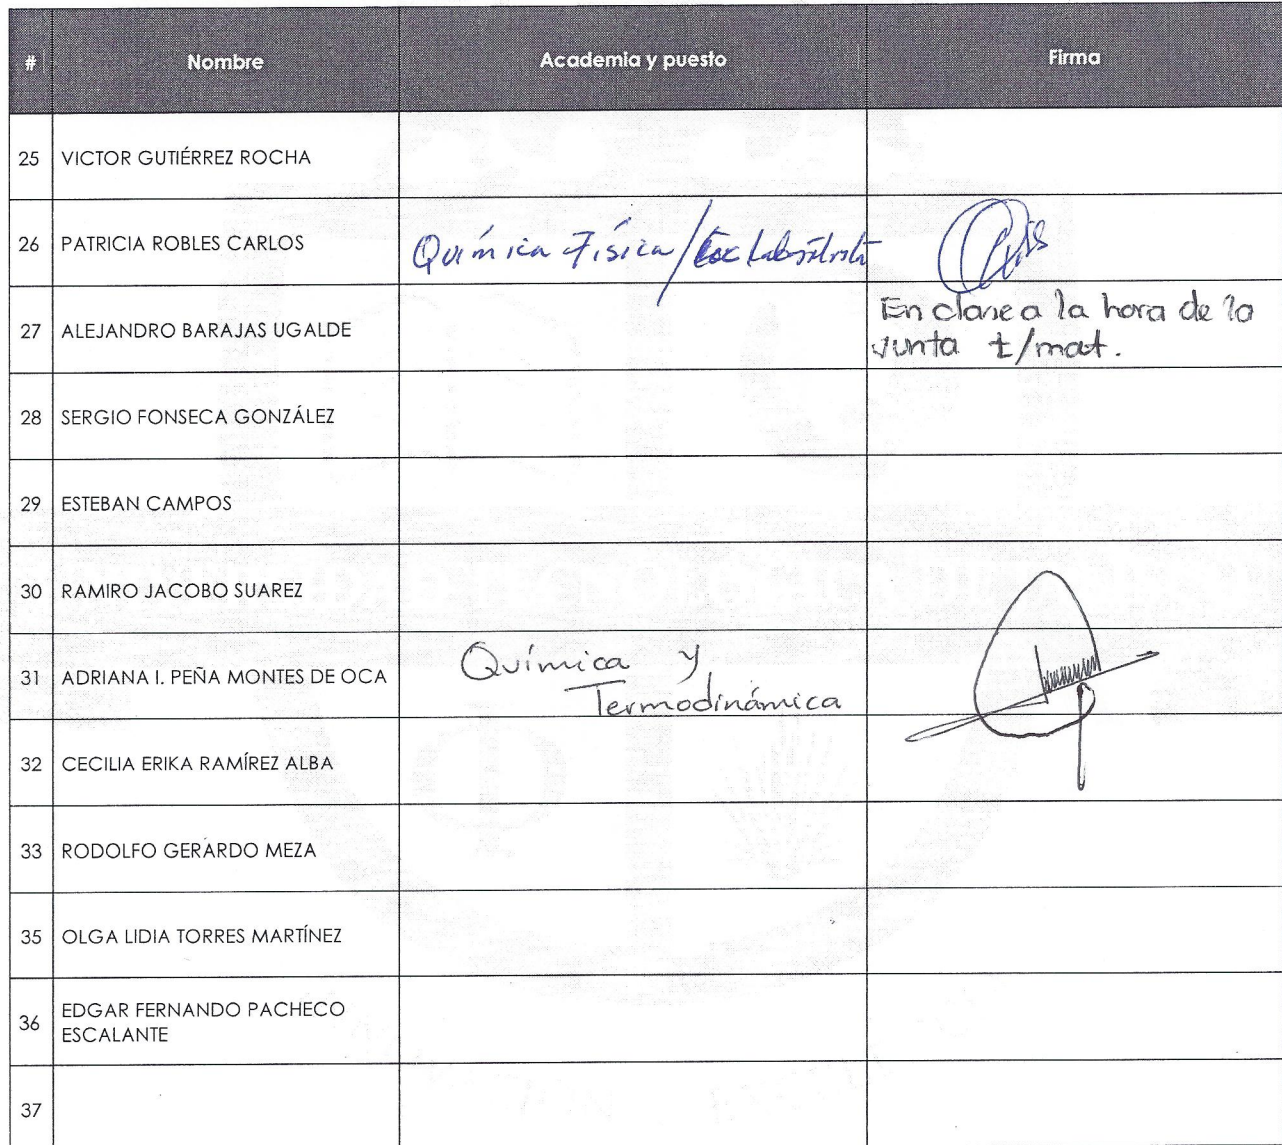 # Nombre Academia y puesto Firma
25 VICTOR GUTIÉRREZ ROCHA
26 PATRICIA ROBLES CARLOS Química Física /
27 ALEJANDRO BARAJAS UGALDE En clase a la hora de la
junta t/mat.
28 SERGIO FONSECA GONZÁLEZ
29 ESTEBAN CAMPOS
30 RAMIRO JACOBO SUAREZ
31 ADRIANA I. PEÑA MONTES DE OCA Química y
Termodinámica
32 CECILIA ERIKA RAMÍREZ ALBA
33 RODOLFO GERARDO MEZA
35 OLGA LIDIA TORRES MARTÍNEZ
36 EDGAR FERNANDO PACHECO
ESCALANTE
37